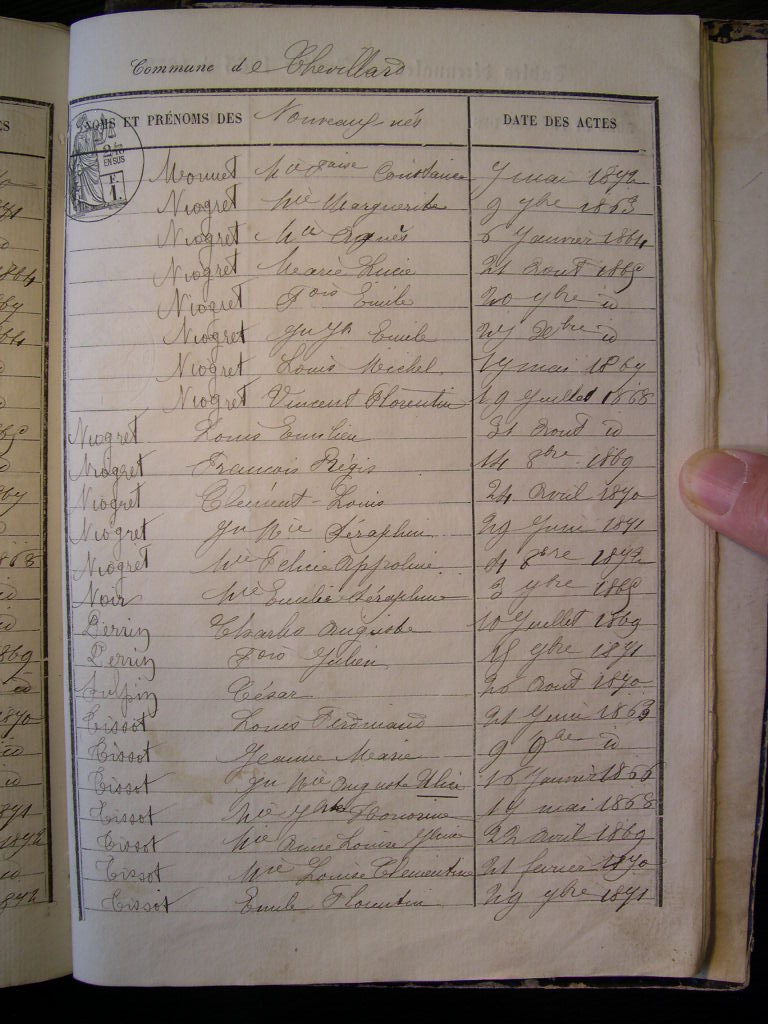 Commune de Chevillard
NOMS ET PRÉNOMS DES Nouveaux nés DATE DES ACTES
2/10 EN SUS
F. 1.
Monnet Mie Faise Constance 7 mai 1872
Niogret Mie Marguerite 9 ybre 1863
Niogret Mie Agnès 6 Janvier 1864
Niogret Marie Lucie 21 Aout 1865
Niogret Fois Emile 20 ybre id
Niogret Emile 27 id
Niogret Louis Michel 17 mai 1867
Niogret Vincent Florentin 19 Juillet 1868
Niogret Louis Emilien 31 Aout id
Niogret Francois Régis 14 8bre 1869
Niogret Clément-Louis 24 Avril 1870
Niogret Jn Mie Séraphin 29 Juin 1871
Niogret Mie Felicie Appoline 4 8bre 1872
Noir Mie Emilie Séraphine 3 ybre 1865
Perrin Charles Auguste 10 Juillet 1869
Perrin Fois Julien ybre 1871
Sulpin César 26 Aout 1870
Tissot Louis Ferdinand 21 Juin 1863
Tissot Jeanne Marie 9 id
Tissot Jn Mie Auguste Alix 16 Janvier 1866
Tissot Mie Honorine 14 mai 1868
Tissot Mie Anne Louise 22 Avril 1869
Tissot Mie Louise Clementine 21 fevrier 1870
Tissot Emile Florentin 29 ybre 1871